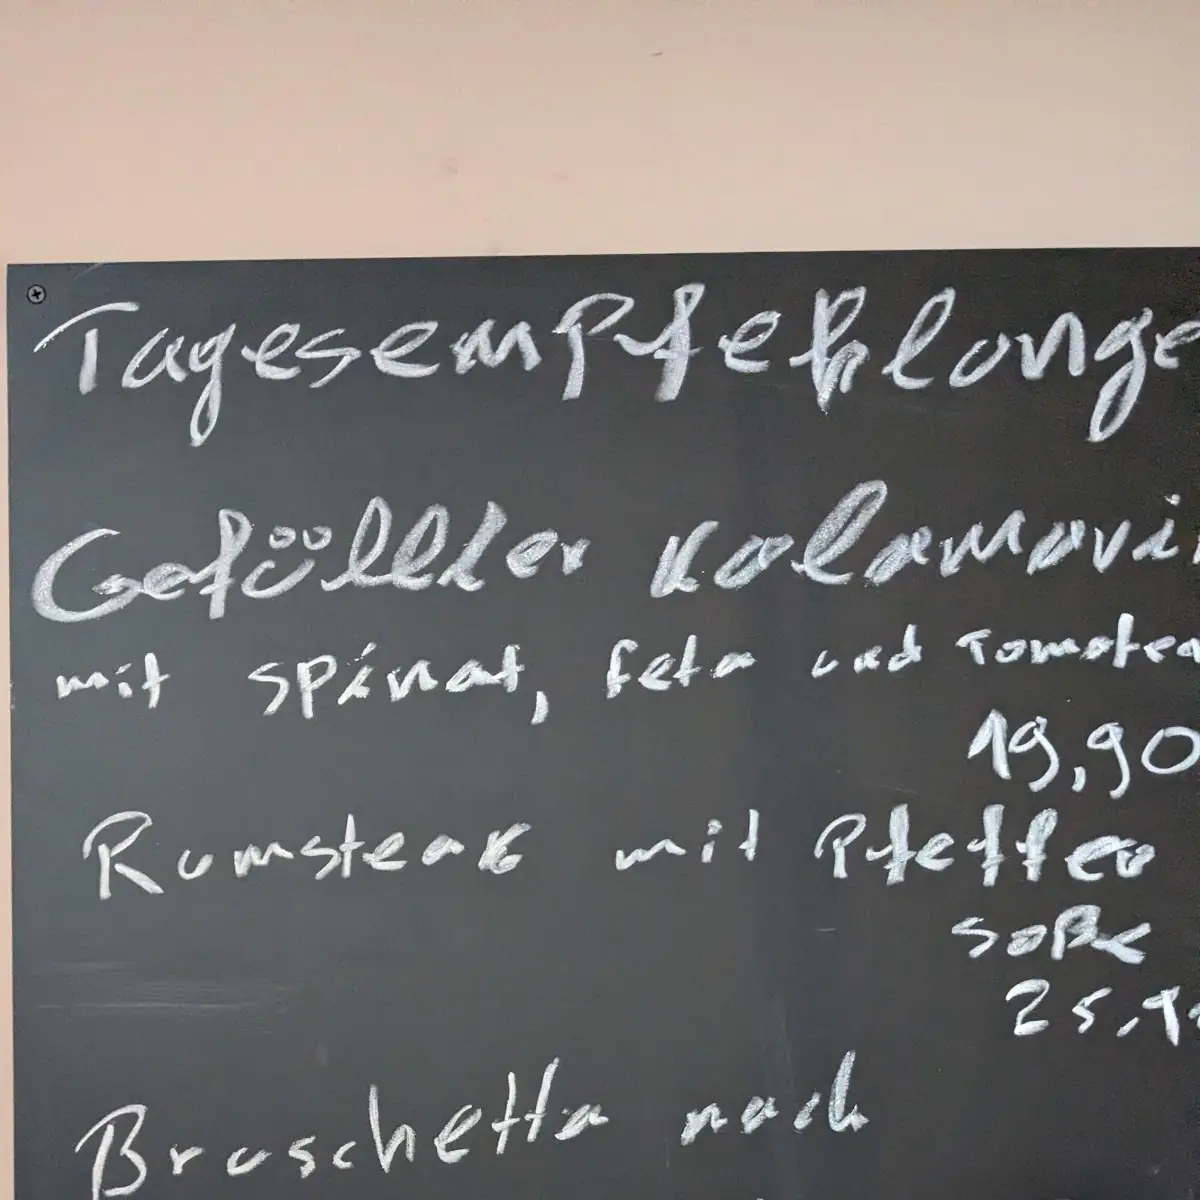 Tagesempfehlunge
Gefüllter Kalamari
mit Spinat, Feta und Tomaten
19,90
Rumsteak mit Pfeffer
soße
25,9
Bruschetta nach